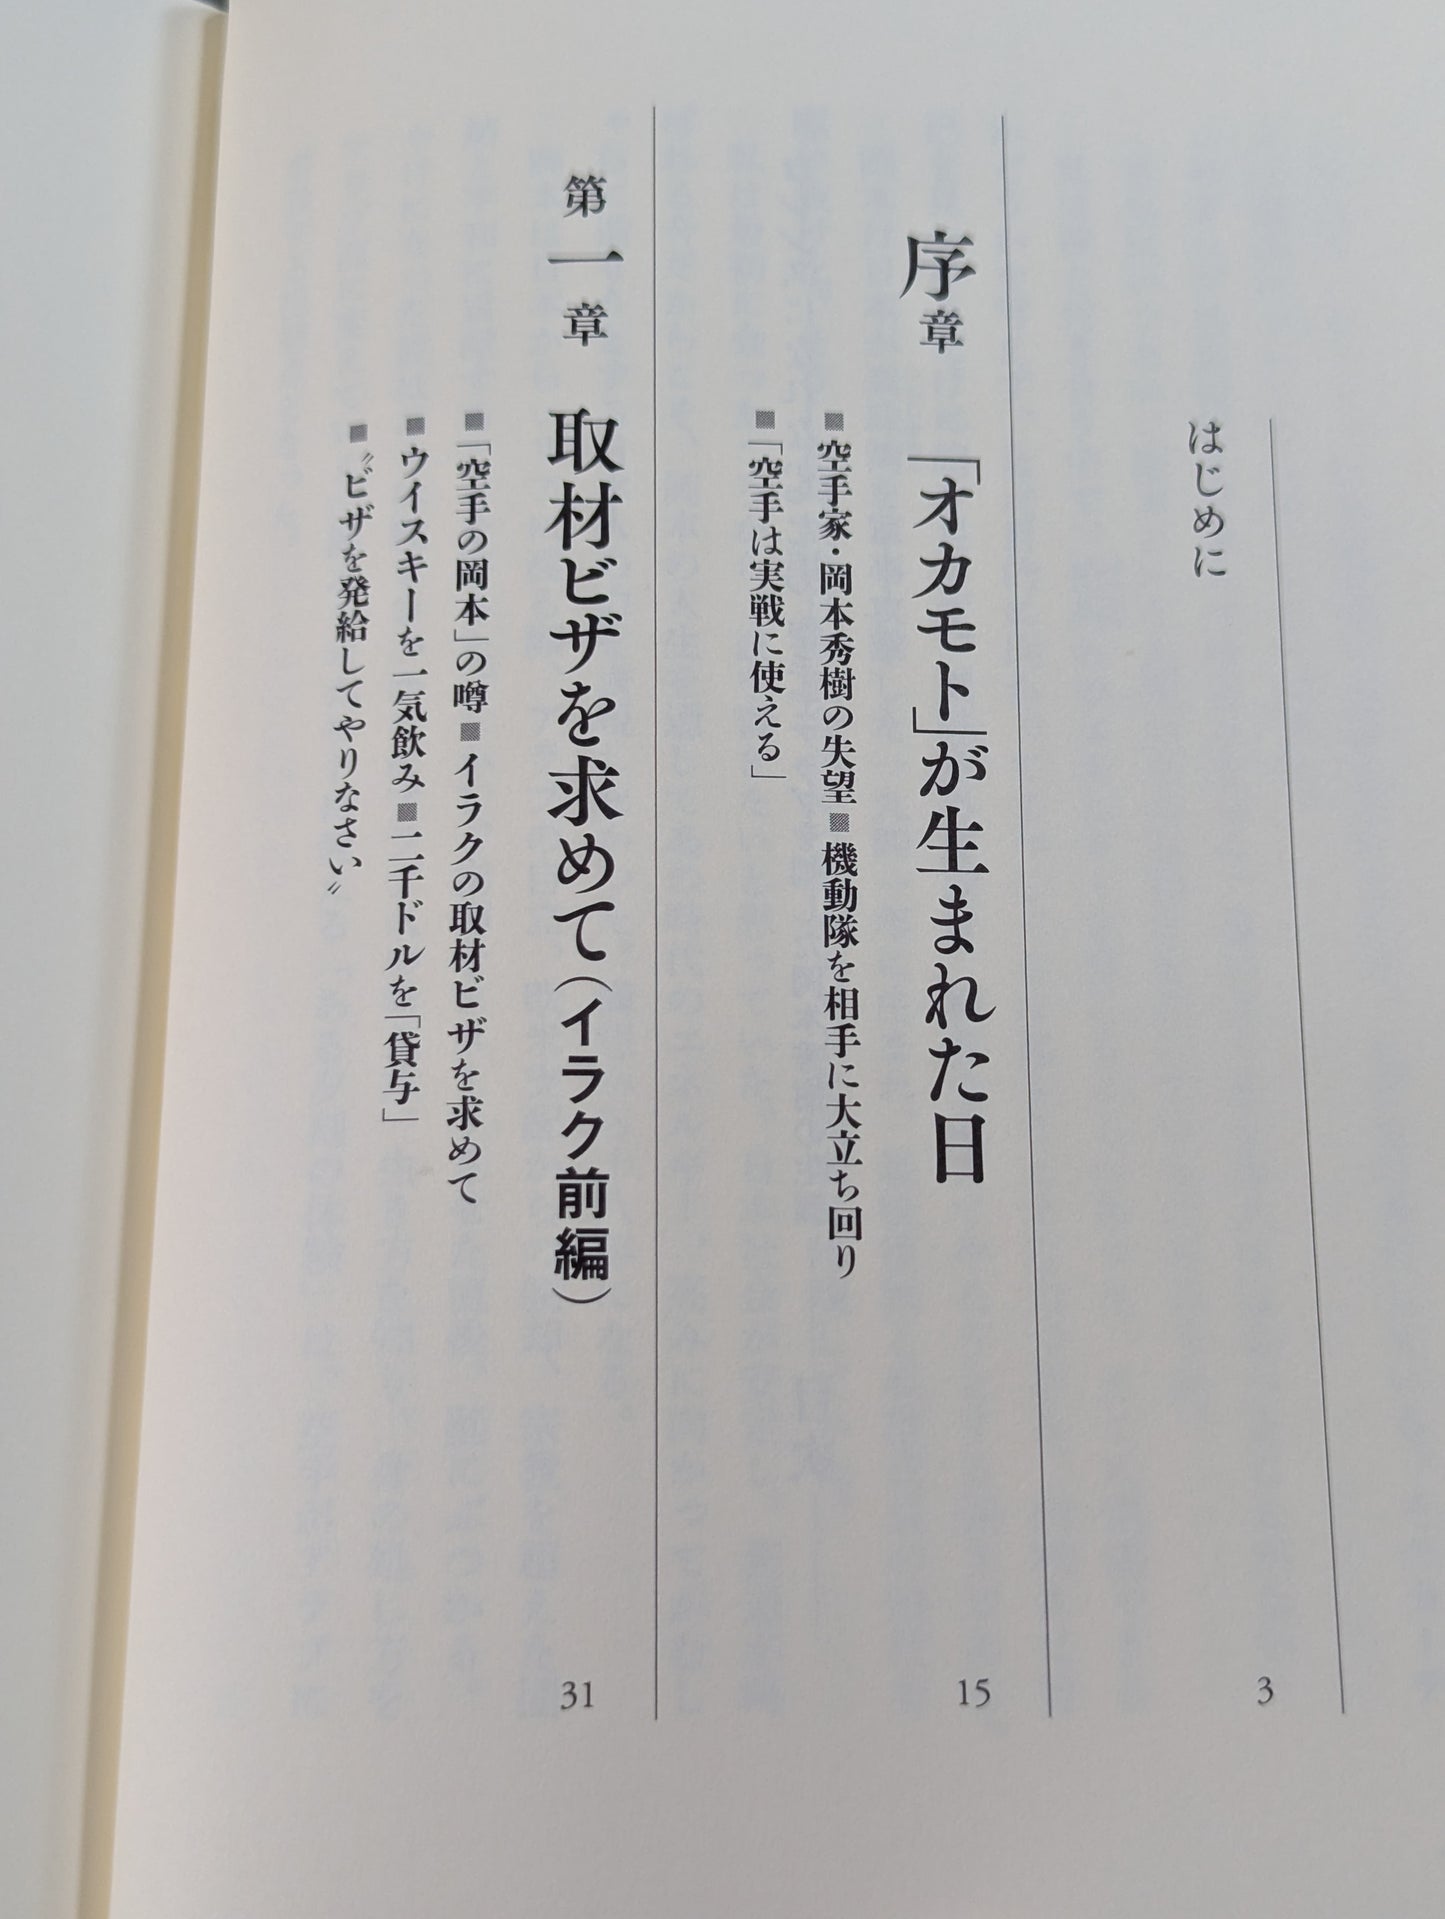 はじめに
3
序章
「オカモト」が生まれた日
15
■空手家・岡本秀樹の失望■機動隊を相手に大立ち回り
■「空手は実戦に使える」
第一章
取材ビザを求めて（イラク前編）
31
■「空手の岡本」の噂■イラクの取材ビザを求めて
■ウイスキーを一気飲み■二千ドルを「貸与」
■〝ビザを発給してやりなさい〟